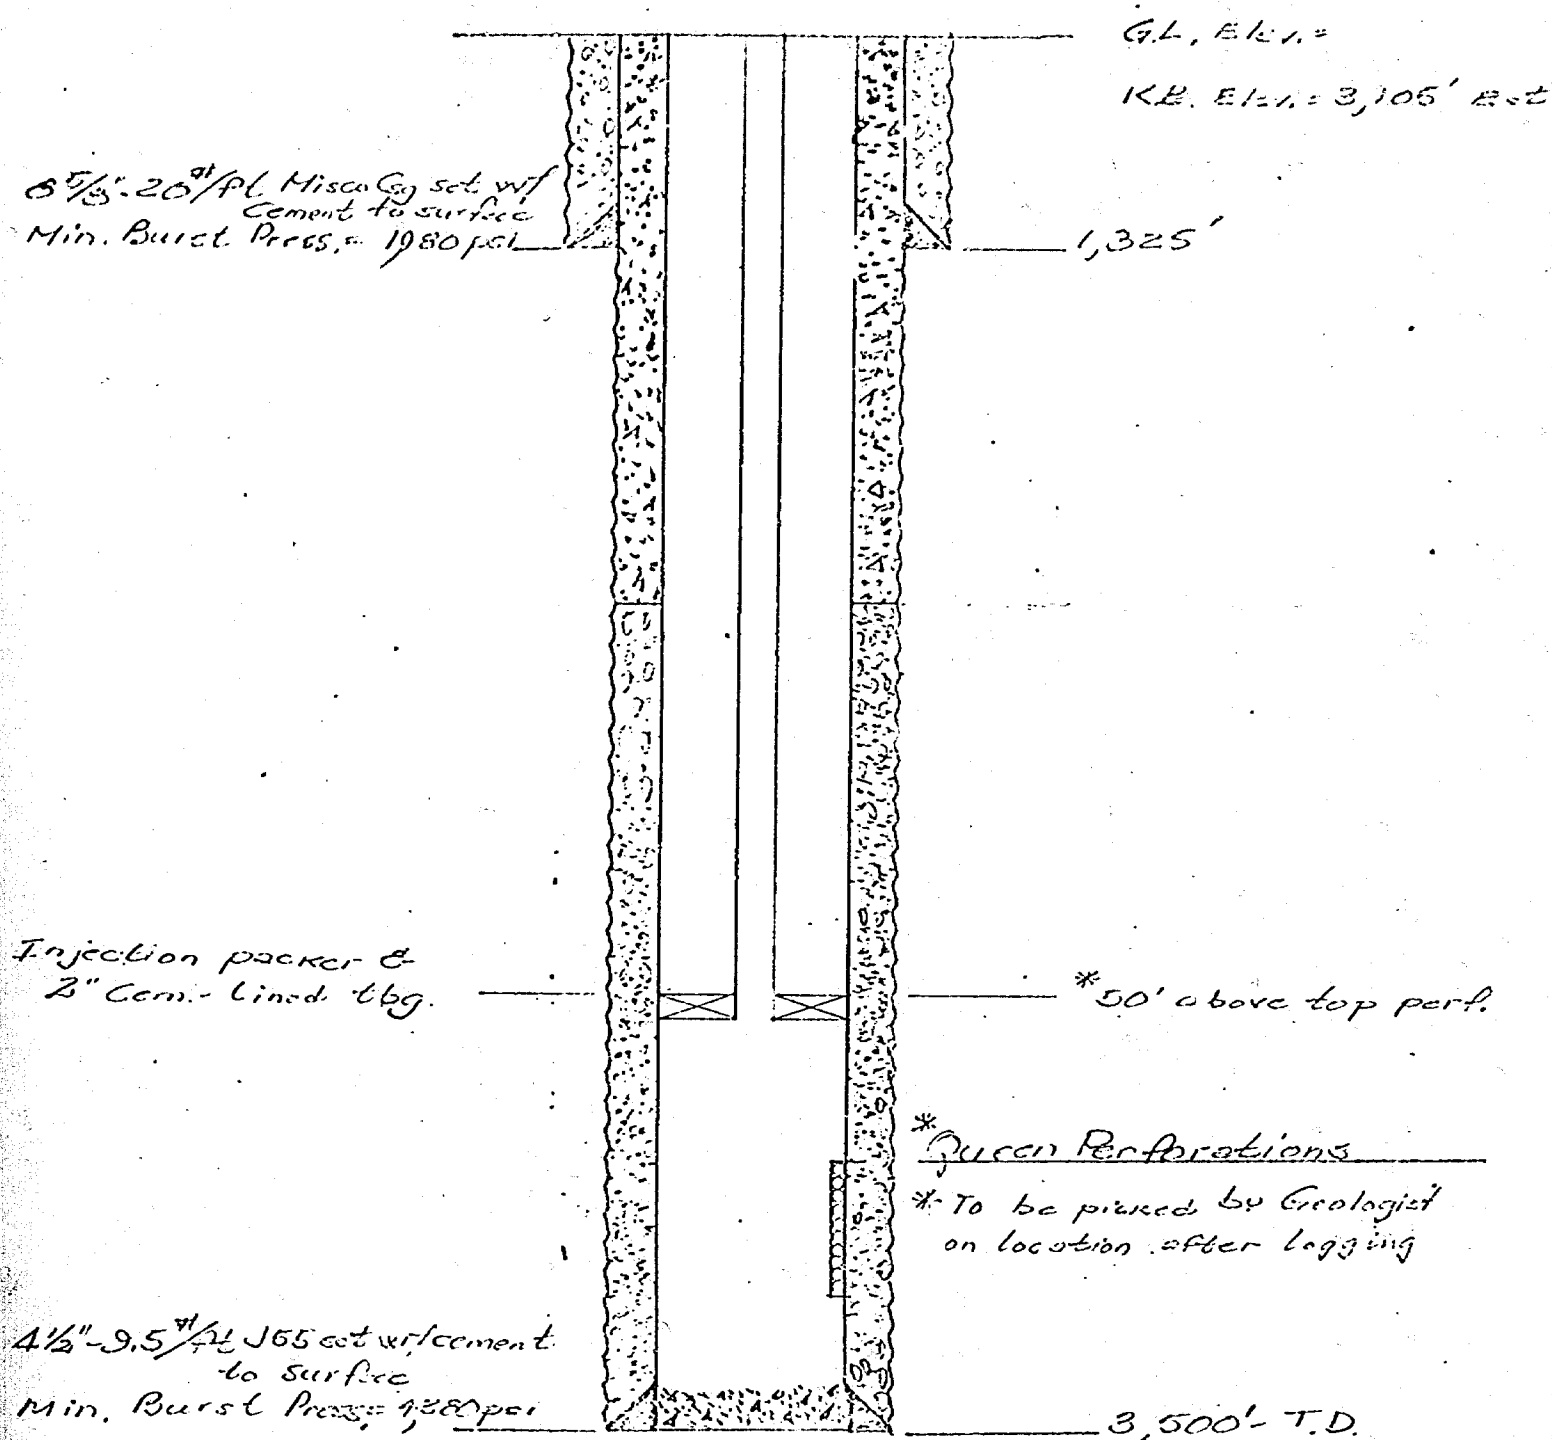 G.L. Elev. =
K.B. Elev. = 3,105' est
8 5/8"-20#/ft Misco Csg set w/
Cement to surface
Min. Burst Press. = 1980 psi
1,325'
Injection packer &
2" Cem.-Lined tbg.
*50' above top perf.
*Queen Perforations
*To be picked by Geologist
on location after logging
4½"-9.5#/ft J55 set w/cement
to surface
Min. Burst Press.=
3,500'- T.D.